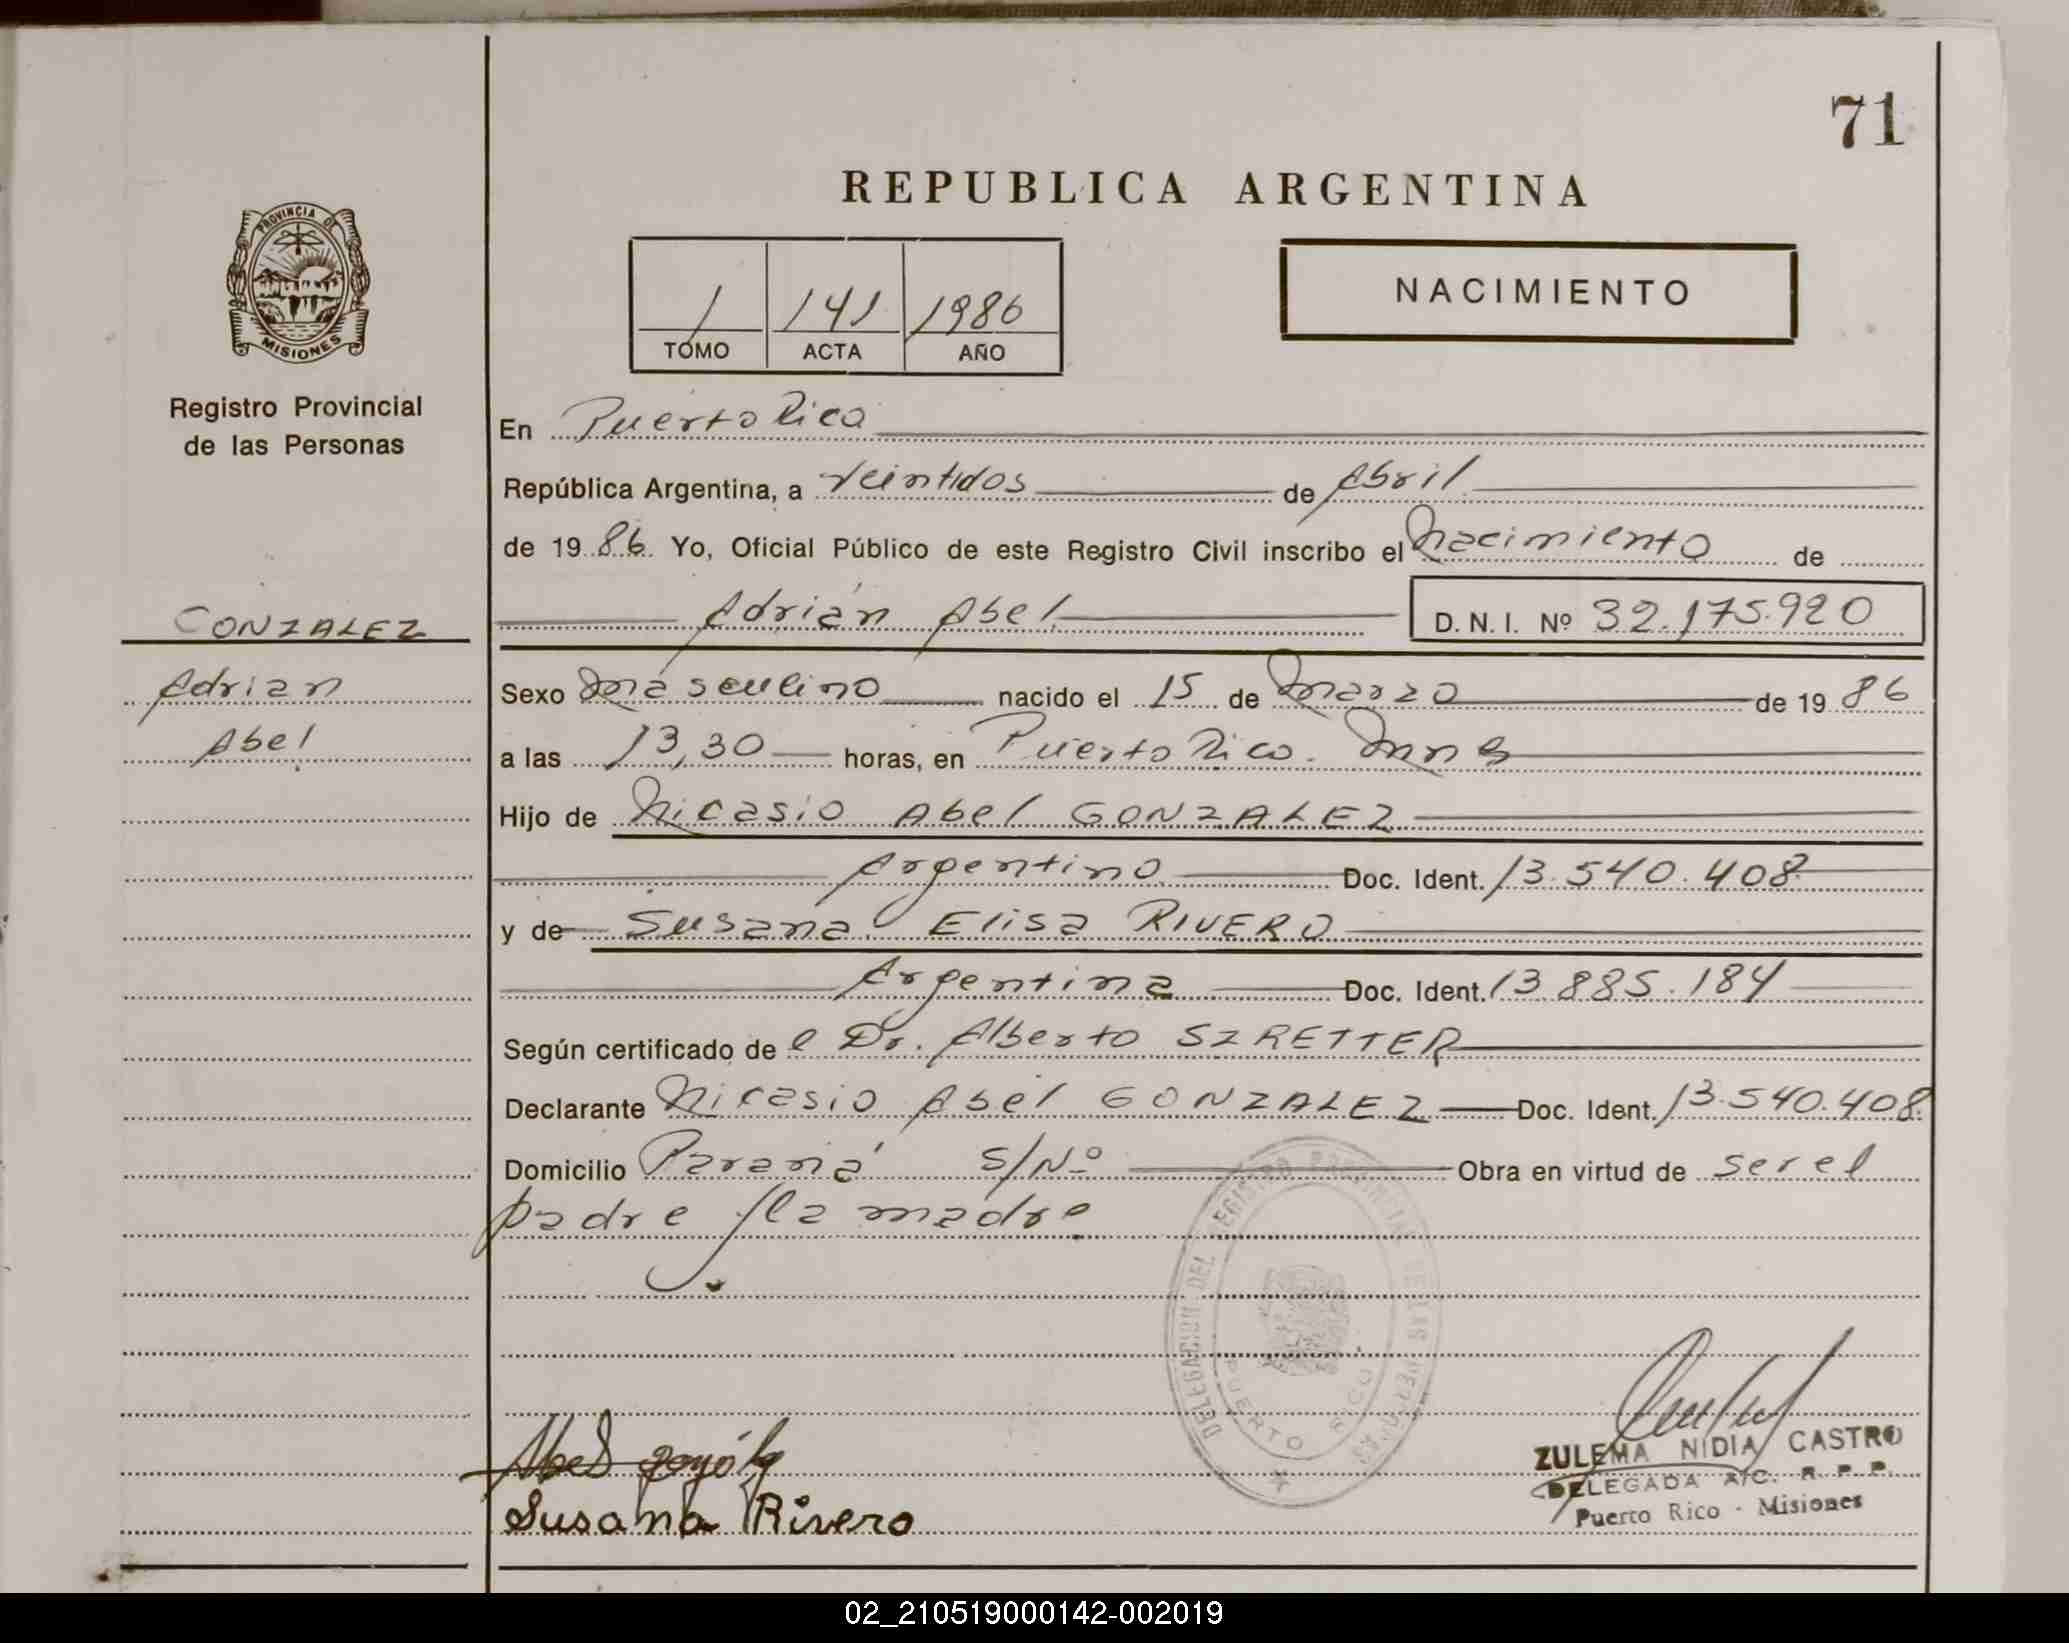 71
REPUBLICA ARGENTINA
PROVINCIA DE
MISIONES
Registro Provincial
de las Personas
1 141 1986
TOMO ACTA AÑO
NACIMIENTO
En Puerto Rico
República Argentina, a veintidos de Abril
de 1986 Yo, Oficial Público de este Registro Civil inscribo el Nacimiento de
GONZALEZ
Adrián Abel
D. N. I. Nº 32.175.920
Adrian
Abel
Sexo masculino nacido el 15 de Marzo de 1986
a las 13,30 horas, en Puerto Rico. Mnes
Hijo de Nicasio Abel GONZALEZ
Argentino Doc. Ident. 13.540.408
y de Susana Elisa RIVERO
Argentina Doc. Ident. 13.885.184
Según certificado de el Dr. Alberto SZRETTER
Declarante Nicasio Abel GONZALEZ Doc. Ident. 13.540.408
Domicilio Paraná S/Nº Obra en virtud de ser el
padre y la madre
DELEGACION DEL REGISTRO PROVINCIAL DE LAS PERSONAS
PUERTO RICO
Susana Rivero
ZULEMA NIDIA CASTRO
DELEGADA A/C. R. P. P.
Puerto Rico - Misiones
02_210519000142-002019